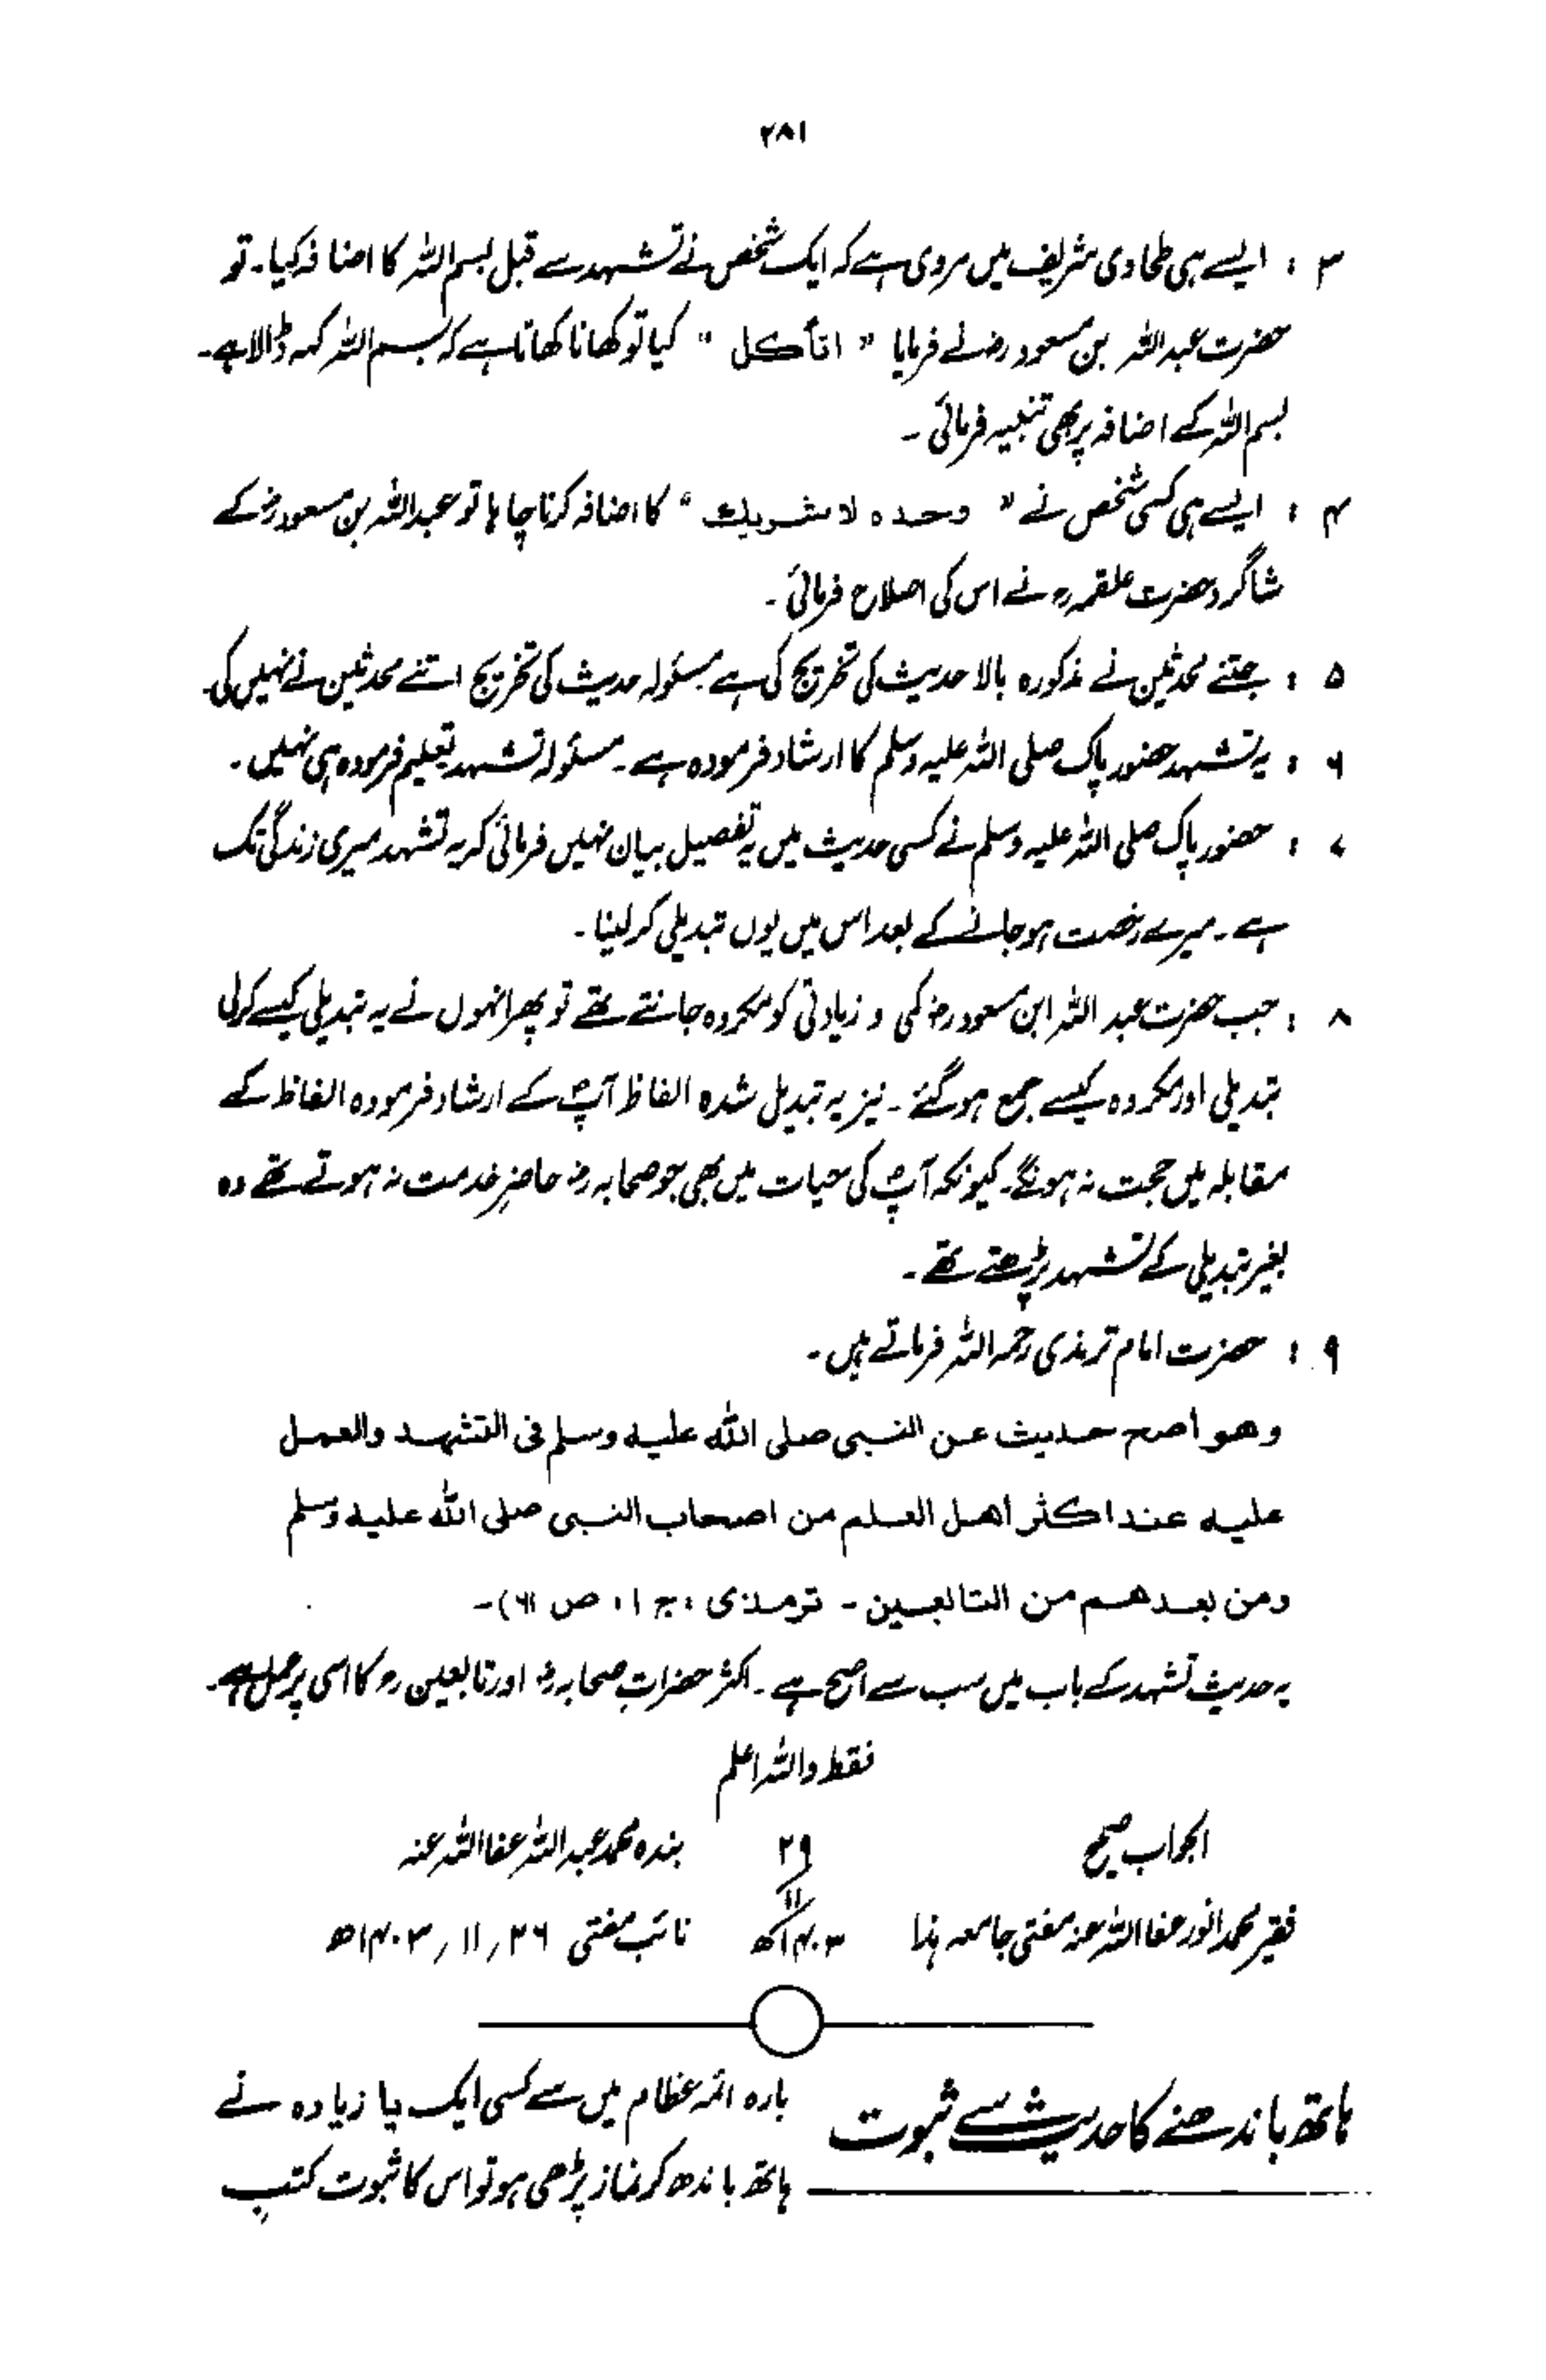 ۲۸۱
۳ : ایسے ہی طحاوی شریف میں مروی ہے کہ ایک شخص نے تشہد سے قبل بسم اللہ کا اضافہ کیا۔ تو
حضرت عبداللہ بن مسعودرض نے فرمایا " اتأکل " کیا تو کھانا کھاتا ہے کہ بسم اللہ کہہ ڈالا ہے۔
بسم اللہ کے اضافہ پر بھی تنبیہ فرمائی ۔
۴ : ایسے ہی کسی شخص نے " وحدہ لا شریک " کا اضافہ کرنا چاہا تو عبداللہ بن مسعودرض کے
شاگرد حضرت علقمہرح نے اس کی اصلاح فرمائی ۔
۵ : جتنے محدثین نے مذکورہ بالا حدیث کی تخریج کی ہے مسئولہ حدیث کی تخریج اتنے محدثین نے نہیں کی۔
۶ : یہ تشہد حضور پاک صلی اللہ علیہ وسلم کا ارشاد فرمودہ ہے ۔ مسئولہ تشہد تعلیم فرمودہ ہی نہیں ۔
۷ : حضور پاک صلی اللہ علیہ وسلم نے کسی حدیث میں یہ تفصیل بیان نہیں فرمائی کہ یہ تشہد میری زندگی تک
ہے ۔ میرے رخصت ہو جانے کے بعد اس میں یوں تبدیلی کر لینا ۔
۸ : جب حضرت عبد اللہ ابن مسعودرض کمی و زیادتی کو مکروہ جانتے تھے تو پھر انہوں نے یہ تبدیلی کیسے کرلی
تبدیلی اور مکروہ کیسے جمع ہو گئے ۔ نیز یہ تبدیل شدہ الفاظ آپؐ کے ارشاد فرمودہ الفاظ کے
مقابلہ میں حجت نہ ہونگے۔ کیونکہ آپؐ کی حیات میں بھی جو صحابہرض حاضرِ خدمت نہ ہوتے تھے وہ
بغیر تبدیلی کے تشہد پڑھتے تھے ۔
۹ : حضرت امام ترمذی رحمہ اللہ فرماتے ہیں ۔
وهو أصح حديث عن النبى صلى الله عليه وسلم فى التشهد والعمل
عليه عند اكثر أهل العلم من اصحاب النبى صلى الله عليه وسلم
ومن بعدهم من التابعين - ترمذى ، ج ١ ، ص ٦١)-
یہ حدیث تشہد کے باب میں سب سے اصح ہے ۔ اکثر حضراتِ صحابہرض اور تابعینرح کا اسی پر عمل ہے۔
فقط واللہ اعلم
الجواب صحیح ۲۹ بندہ محمد عبداللہ عفا اللہ عنہ
۱۱
فقیر محمد انور عفا اللہ عنہ مفتی جامعہ ہٰذا ۱۴۰۳ھ نائب مفتی ۲۶ ؍ ۱۱ ؍ ۱۴۰۳ھ
ہاتھ باندھنے کا حدیث سے ثبوت
بارہ ائمہ عظام میں سے کسی ایک یا زیادہ نے
ہاتھ باندھ کر نماز پڑھی ہو تو اس کا ثبوت کتب